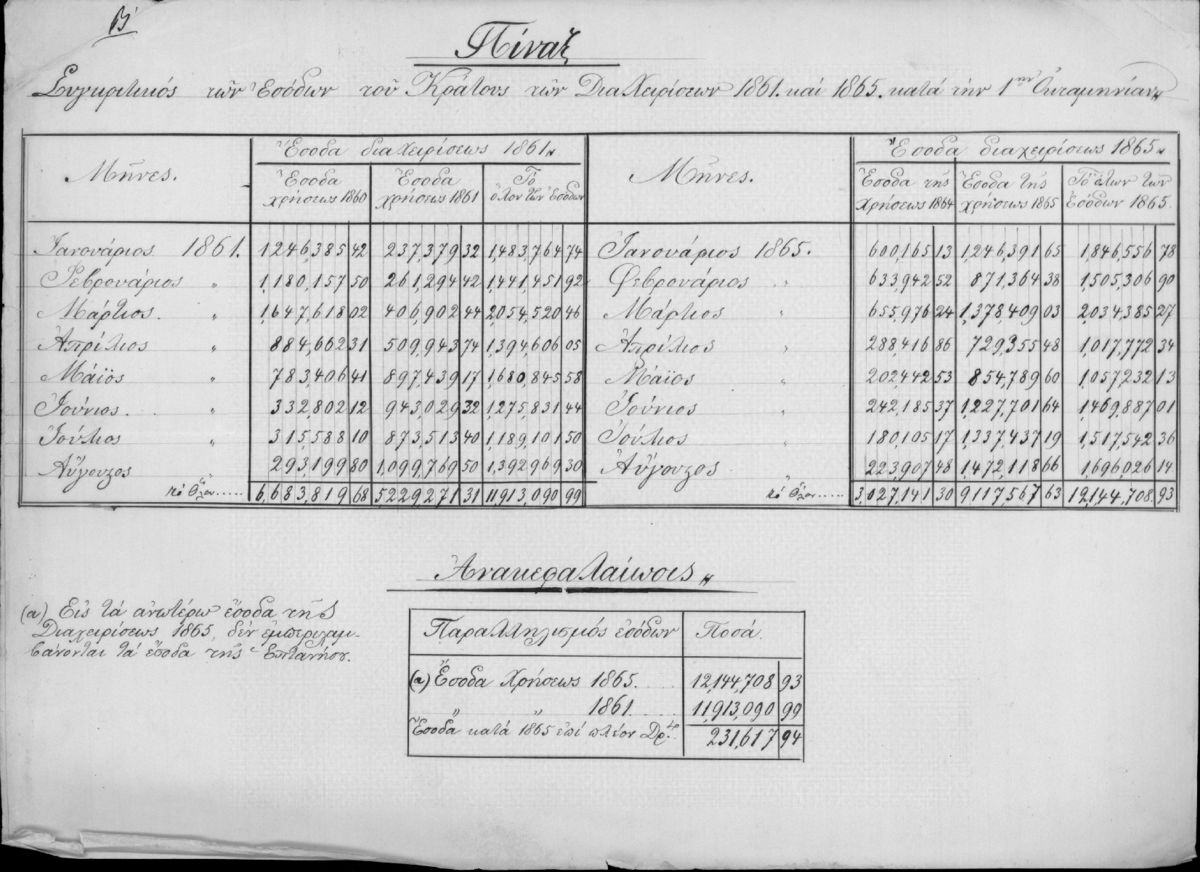 Β'
Πίναξ
Συγκριτικός τῶν Ἐσόδων τοῦ Κράτους τῶν Διαχειρίσεων 1861. καί 1865. κατά τήν 1ην Ὀκταμηνίαν
Μῆνες. Ἔσοδα διαχειρίσεως 1861 Μῆνες. Ἔσοδα διαχειρίσεως 1865
Ἔσοδα χρήσεως 1860 Ἔσοδα χρήσεως 1861 Τό ὅλον τῶν ἐσόδων Ἔσοδα τῆς χρήσεως 1864 Ἔσοδα τῆς χρήσεως 1865 Τό ὅλων τῶν Ἐσόδων 1865.
Ἰανουάριος 1861. 1,246,385 42 237,379 32 1,483,764 74 Ἰανουάριος 1865. 600,165 13 1,246,391 65 1,846,556 78
Φεβρουάριος „ 1,180,157 50 261,294 42 1,441,451 92 Φεβρουάριος „ 633,942 52 871,364 38 1,505,306 90
Μάρτιος. „ 1,647,618 02 406,902 44 2,054,520 46 Μάρτιος „ 655,976 24 1,378,409 03 2,034,385 27
Ἀπρίλιος „ 884,662 31 509,943 74 1,394,606 05 Ἀπρίλιος „ 288,416 86 729,355 48 1,017,772 34
Μάϊος „ 783,406 41 897,439 17 1,680,845 58 Μάϊος „ 202,442 53 854,789 60 1,057,232 13
Ἰούνιος. „ 332,802 12 943,029 32 1,275,831 44 Ἰούνιος „ 242,185 37 1,227,701 64 1,469,887 01
Ἰούλιος „ 315,588 10 873,513 40 1,189,101 50 Ἰούλιος „ 180,105 17 1,337,437 19 1,517,542 36
Αὔγουστος „ 293,199 80 1,099,769 50 1,392,969 30 Αὔγουστος „ 223,907 48 1,472,118 66 1,696,026 14
τό Ὅλον..... 6,683,819 68 5,229,271 31 11,913,090 99 τό Ὅλον..... 3,027,141 30 9,117,567 63 12,144,708. 93
Ἀνακεφαλαίωσις „
(α) Εἰς τά ἀνωτέρω ἔσοδα τῆς
Διαχειρίσεως 1865, δέν ἐμπεριλαμ-
βάνονται τά ἔσοδα τῆς Ἑπτανήσου.
Παραλληλισμός ἐσόδων Ποσά.
(α) Ἔσοδα Χρήσεως 1865. 12,144,708 93
„ „ 1861. 11,913,090 99
Ἔσοδα κατά 1865 ἐπί πλέον Δρ. 231,617 94